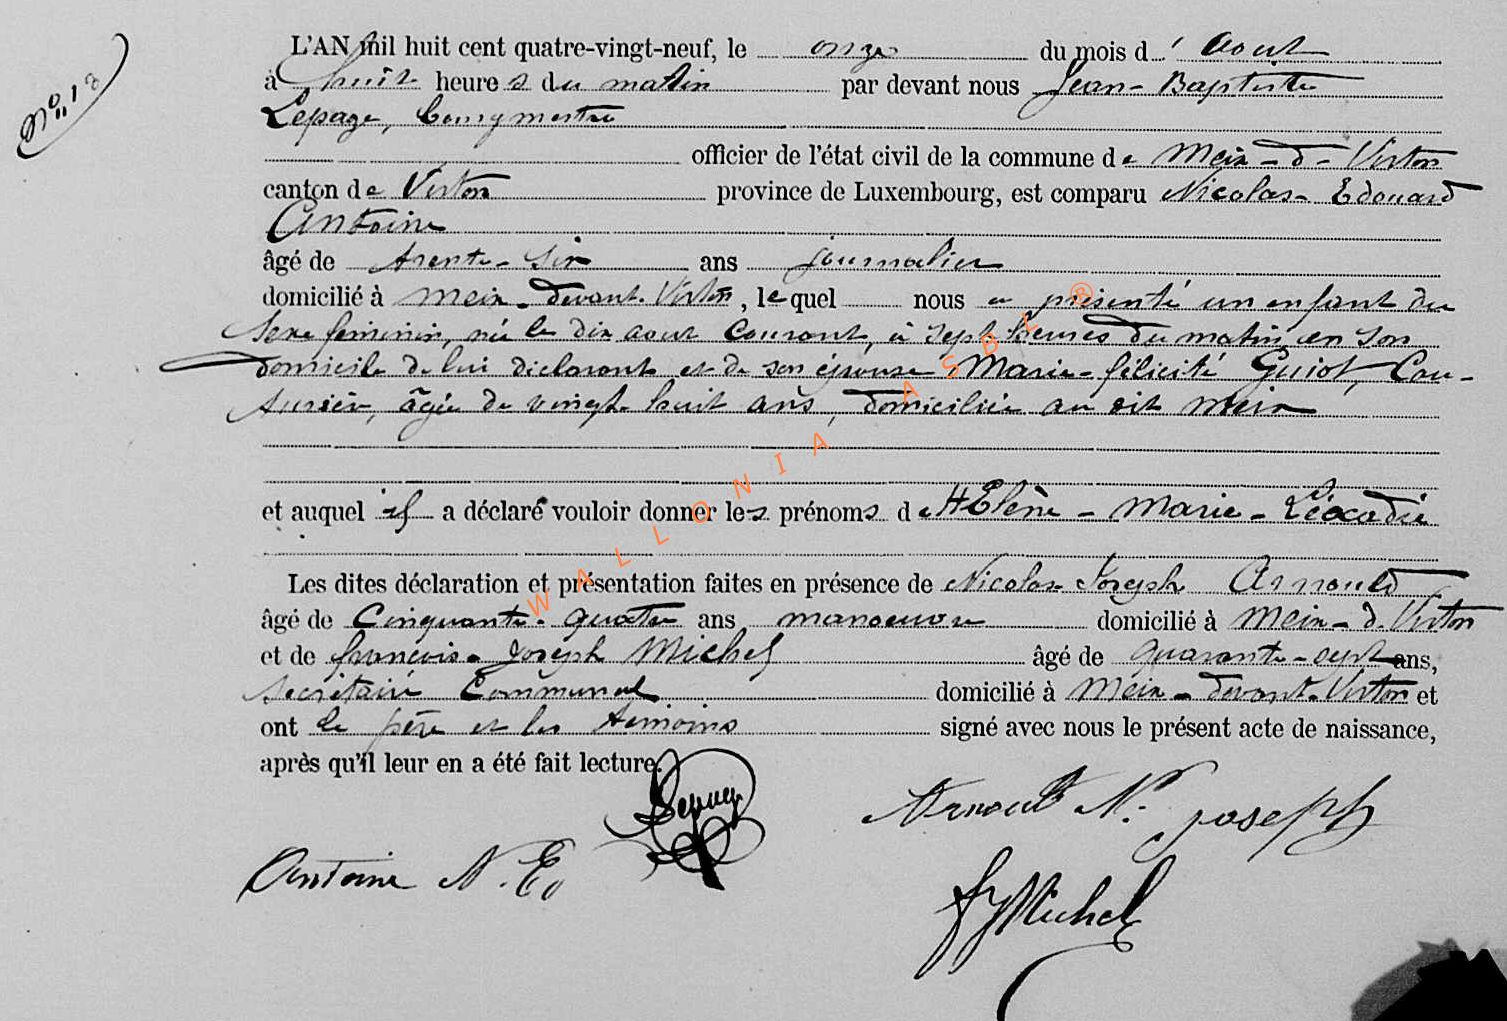 N° 18
L'AN mil huit cent quatre-vingt-neuf, le onze du mois d'Aout
à huit heures du matin par devant nous Jean-Baptiste
Lepage, bourgmestre
officier de l'état civil de la commune de Meix-d-Virton
canton de Virton province de Luxembourg, est comparu Nicolas-Edouard
Antoine
âgé de trente-six ans journalier
domicilié à Meix-devant-Virton, lequel nous a présenté un enfant du
sexe feminin, née le dix aout courant, à sept heures du matin, en son
domicile de lui déclarant et de son épouse Marie-félicité Guiot, Cou-
turière, âgée de vingt-huit ans, domiciliée au dit Meix
et auquel il a déclaré vouloir donner les prénoms de Hélène-Marie-Léocadie
Les dites déclaration et présentation faites en présence de Nicolas-Joseph Arnould
âgé de Cinquante-quatre ans manoeuvre domicilié à Meix-d-Virton
et de françois-Joseph Michel âgé de quarante-sept ans,
secrétaire Communal domicilié à Meix-devant-Virton et
ont le père et les témoins signé avec nous le présent acte de naissance,
après qu'il leur en a été fait lecture.
Lepage
Arnould N. Joseph
Antoine N. E.
fJ Michel
WALLONIA ASBL ®